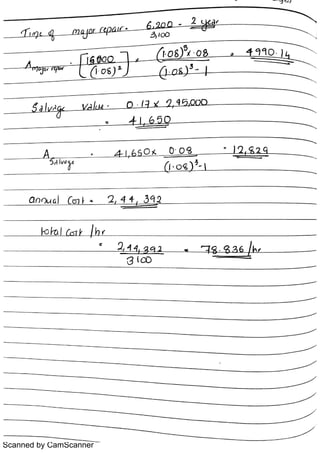 Time of major repair = 6,200 / 3,100 = 2 year
A major repair = [16000 / (1.08)²] × (1.08)³ × .08 / (1.08)³ - 1 = 4990.14
Salvage Value = 0.17 × 2,45,000
= 41,650
A Salvage = 41,650 × 0.08 / (1.08)³ - 1 = 12,829
annual Cost = 2,44,392
total Cost /hr
= 2,44,392 / 3100 = 78.836 /hr
Scanned by CamScanner